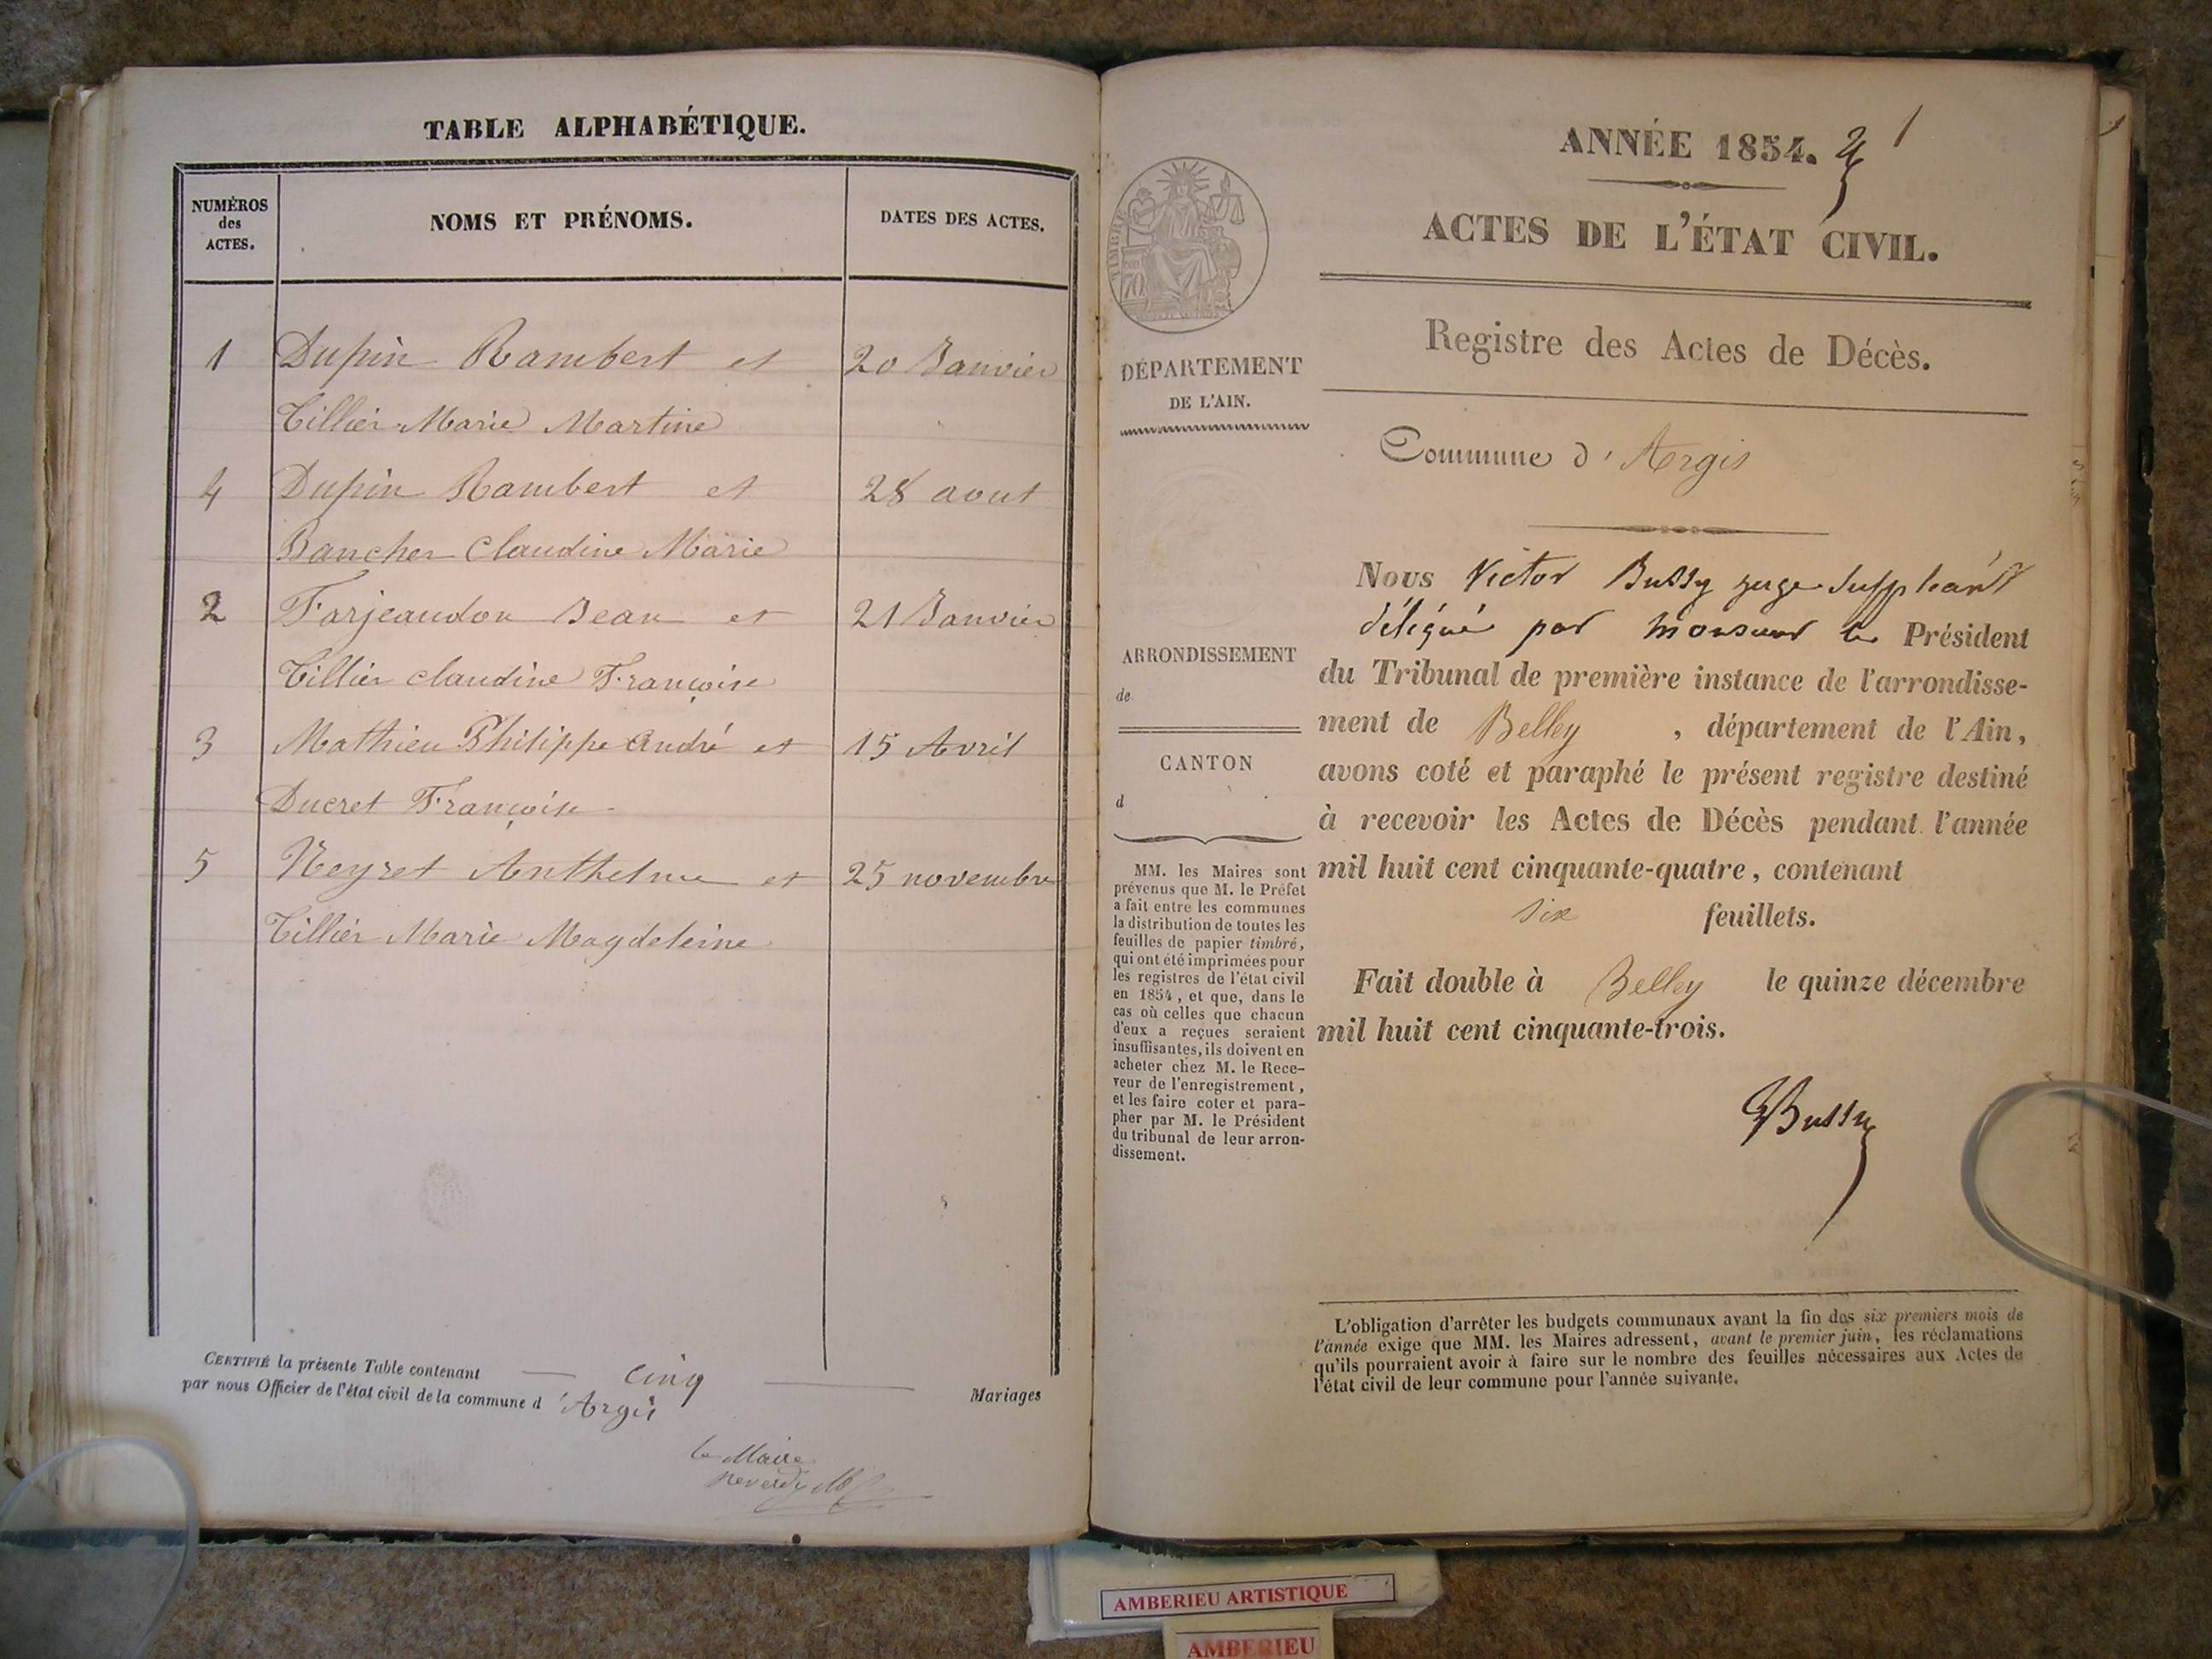 TABLE ALPHABÉTIQUE.
NUMÉROS
des
ACTES.
NOMS ET PRÉNOMS.
DATES DES ACTES.
1 Dupin Rambert et 20 Janvier
Tillier Marie Martine
4 Dupin Rambert et 28 aout
Bancher Claudine Marie
2 Farjeaudon Jean et 21 Janvier
Tillier claudine Françoise
3 Mathieu Philippe André et 15 Avril
Ducret Françoise
5 Neyret Anthelme et 25 novembre
Tillier Marie Magdeleine
CERTIFIÉ la présente Table contenant cinq Mariages
par nous Officier de l'état civil de la commune d'Argis
le Maire
ANNÉE 1854. 1
ACTES DE L'ÉTAT CIVIL.
TIMBRE
70
DÉPARTEMENT
DE L'AIN.
Registre des Actes de Décès.
Commune d'Argis
ARRONDISSEMENT
de
CANTON
d
MM. les Maires sont
prévenus que M. le Préfet
a fait entre les communes
la distribution de toutes les
feuilles de papier timbré,
qui ont été imprimées pour
les registres de l'état civil
en 1854, et que, dans le
cas où celles que chacun
d'eux a reçues seraient
insuffisantes, ils doivent en
acheter chez M. le Rece-
veur de l'enregistrement,
et les faire coter et para-
pher par M. le Président
du tribunal de leur arron-
dissement.
Nous Victor Bussy juge suppleant
délégué par monsieur le Président
du Tribunal de première instance de l'arrondisse-
ment de Belley, département de l'Ain,
avons coté et paraphé le présent registre destiné
à recevoir les Actes de Décès pendant l'année
mil huit cent cinquante-quatre, contenant
six feuillets.
Fait double à Belley le quinze décembre
mil huit cent cinquante-trois.
VBussy
L'obligation d'arrêter les budgets communaux avant la fin des six premiers mois de
l'année exige que MM. les Maires adressent, avant le premier juin, les réclamations
qu'ils pourraient avoir à faire sur le nombre des feuilles nécessaires aux Actes de
l'état civil de leur commune pour l'année suivante.
AMBERIEU ARTISTIQUE
AMBERIEU